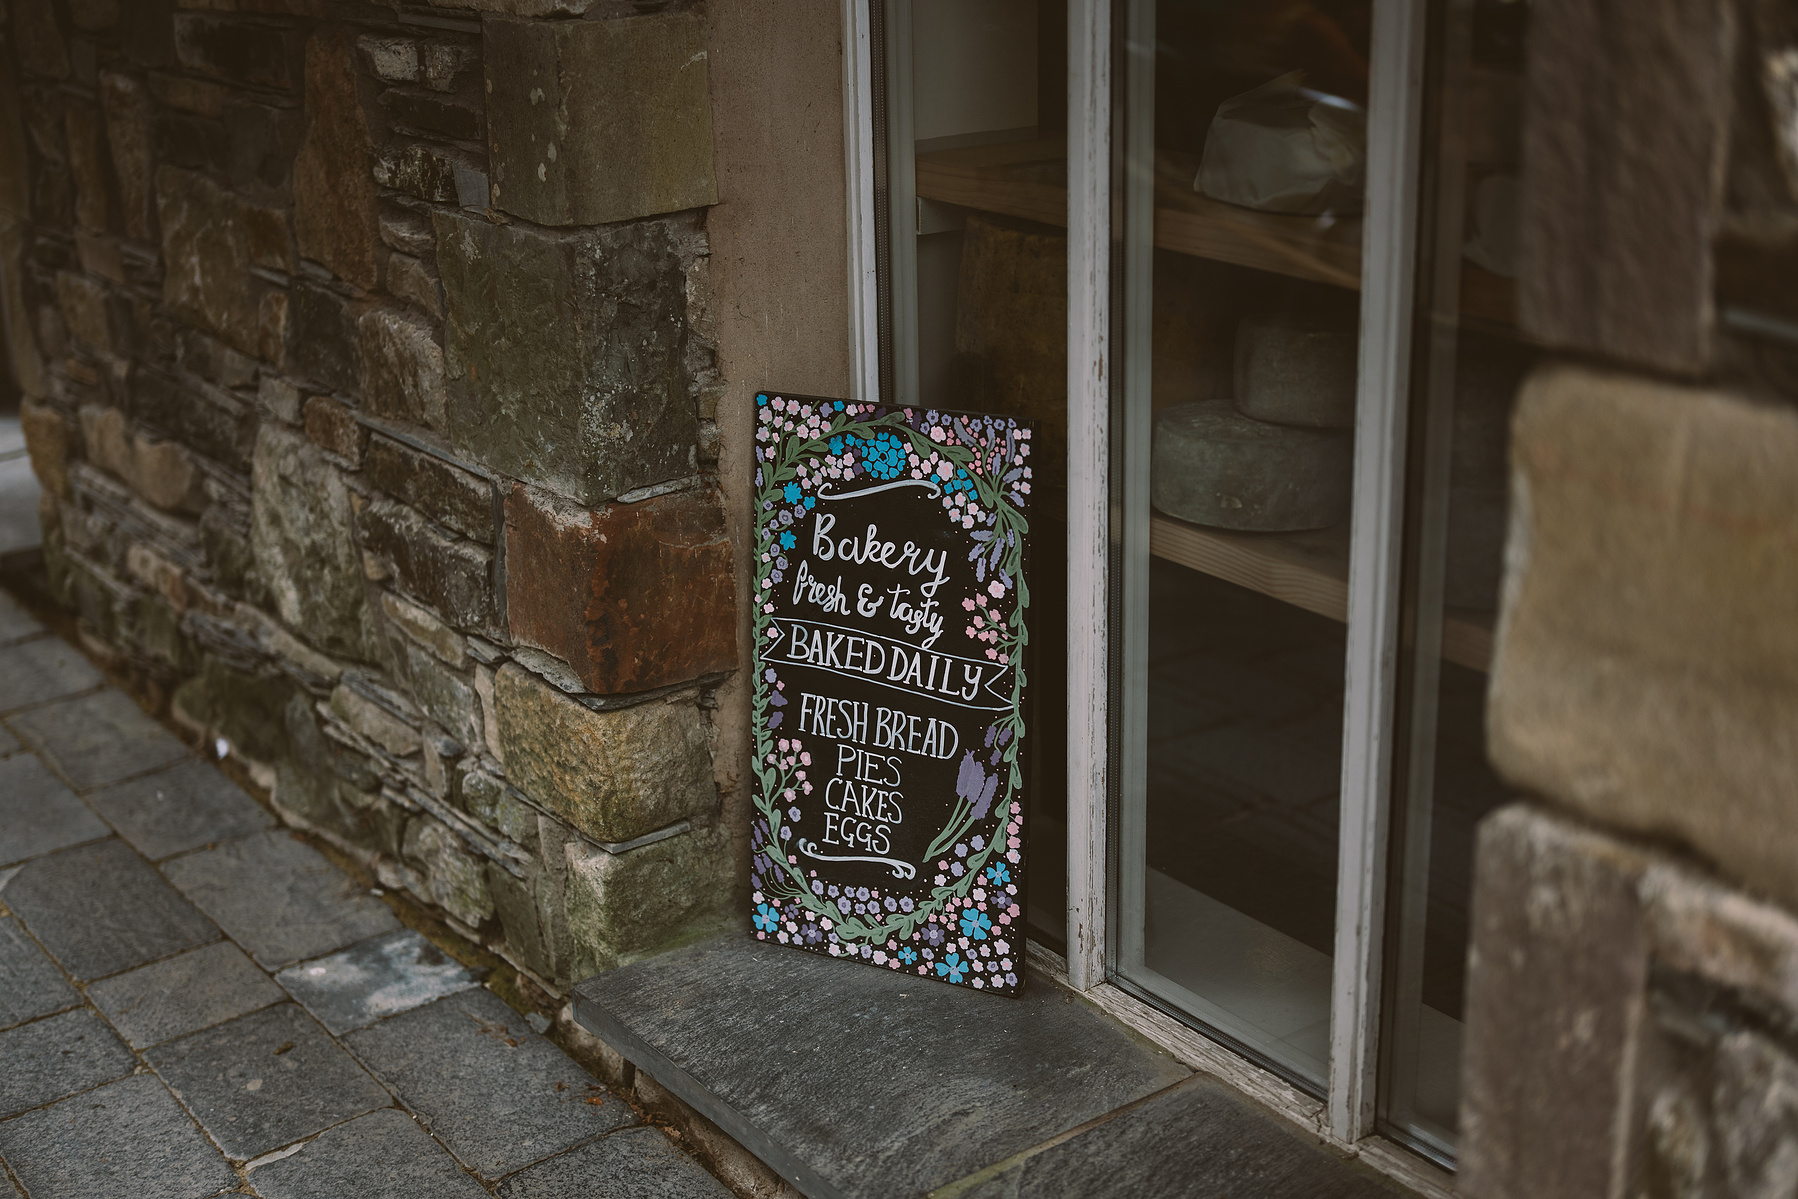 Bakery
fresh & tasty
BAKED DAILY
FRESH BREAD
PIES
CAKES
EGGS